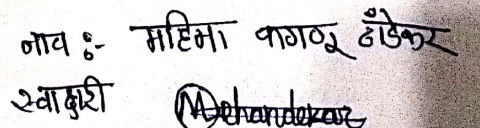 नाव :- महिमा कागळू ढाँडेकर
स्वाक्षरी Mdhandekar